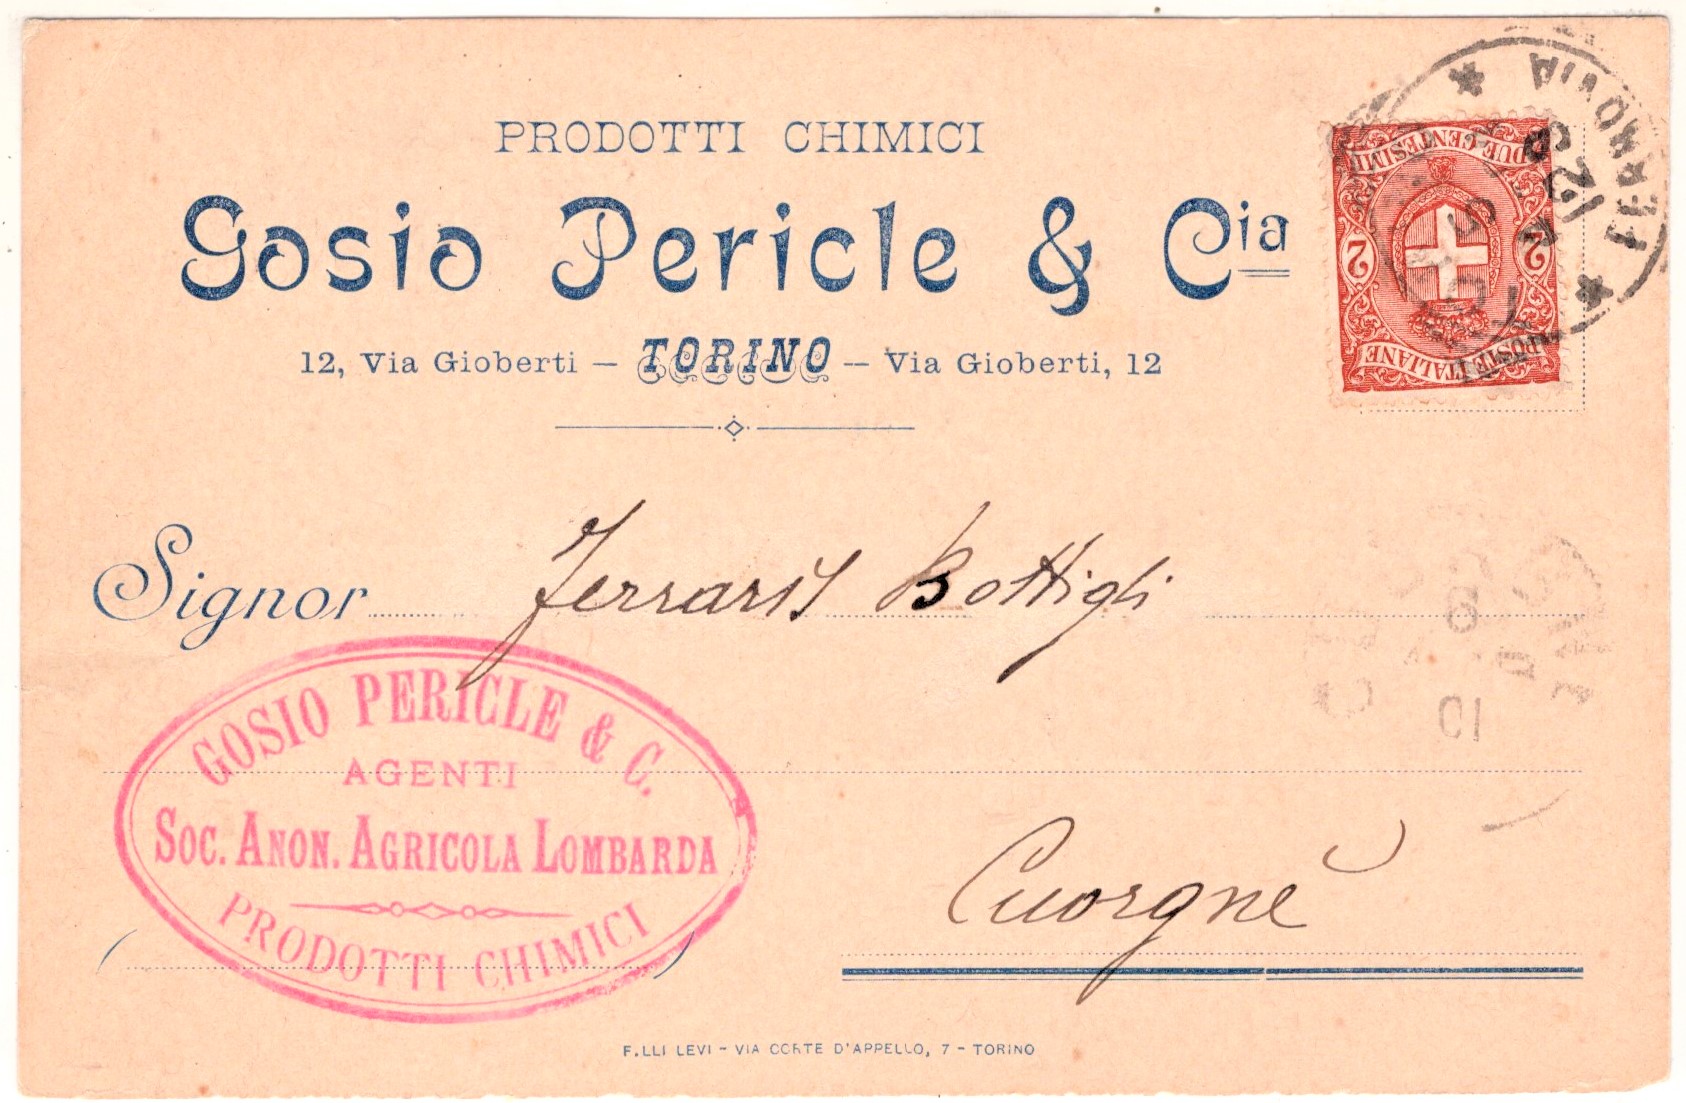 PRODOTTI CHIMICI
Gosio Pericle & Cia
12, Via Gioberti — TORINO — Via Gioberti, 12
DUE CENTESIMI
2 2
POSTE ITALIANE
FERROVIA
12
Signor Ferraris Bottigli
GOSIO PERICLE & C.
AGENTI
SOC. ANON. AGRICOLA LOMBARDA
PRODOTTI CHIMICI
10
Cuorgnè
F.LLI LEVI - VIA CORTE D'APPELLO, 7 - TORINO